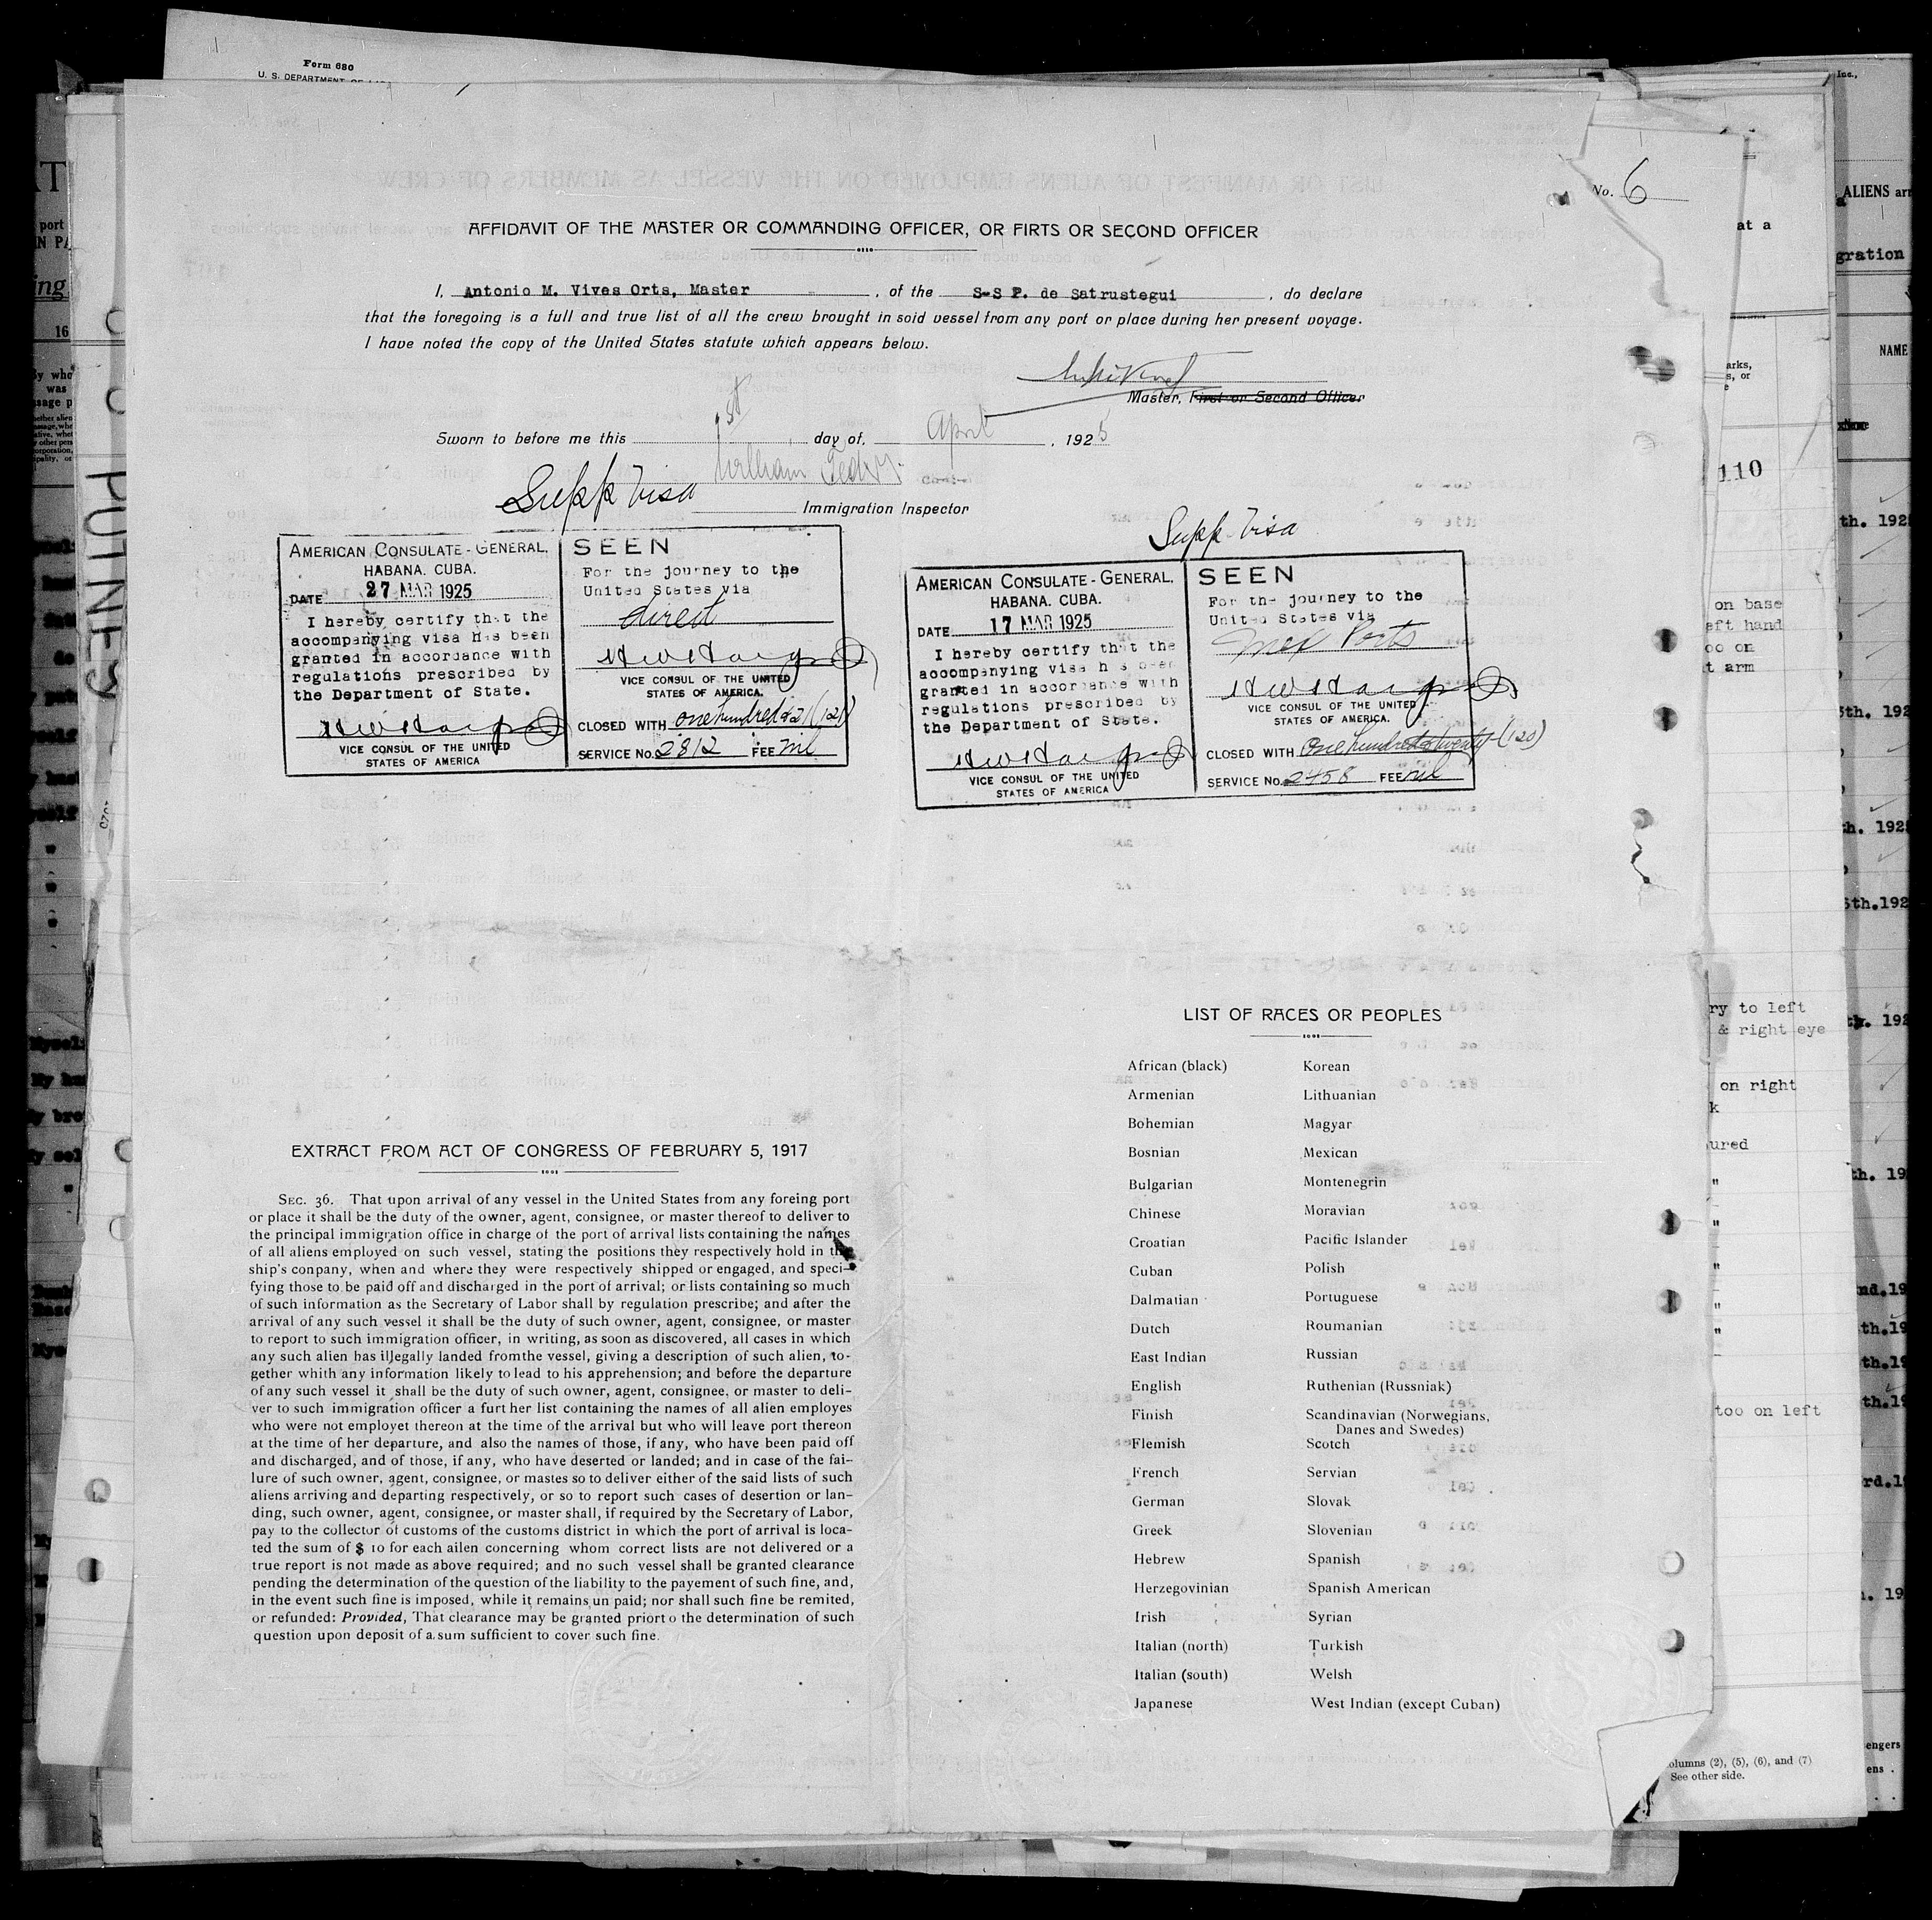 Form 680
No. 6
AFFIDAVIT OF THE MASTER OR COMMANDING OFFICER, OR FIRTS OR SECOND OFFICER
I, Antonio M. Vives Orts, Master, of the S-S P. de Satrustegui, do declare
that the foregoing is a full and true list of all the crew brought in soid vessel from any port or place during her present voyage.
I have noted the copy of the United States statute which appears below.
Master, First or Second Officer
Sworn to before me this 1st day of, April, 1925
William
Supp Visa
Immigration Inspector
AMERICAN CONSULATE-GENERAL,
HABANA. CUBA.
DATE 27 MAR 1925
I hereby certify that the
accompanying visa has been
granted in accordance with
regulations prescribed by
the Department of State.
VICE CONSUL OF THE UNITED
STATES OF AMERICA
SEEN
For the journey to the
United States via
direct
VICE CONSUL OF THE UNITED
STATES OF AMERICA.
CLOSED WITH one hundred & 21 (121)
SERVICE No. 2812 FEE nil
Supp Visa
AMERICAN CONSULATE-GENERAL,
HABANA. CUBA.
DATE 17 MAR 1925
I hereby certify that the
accompanying visa has been
granted in accordance with
regulations prescribed by
the Department of State.
VICE CONSUL OF THE UNITED
STATES OF AMERICA
SEEN
For the journey to the
United States via
Mex Ports
VICE CONSUL OF THE UNITED
STATES OF AMERICA.
CLOSED WITH One hundred & twenty (120)
SERVICE No. 2458 FEE nil
EXTRACT FROM ACT OF CONGRESS OF FEBRUARY 5, 1917
SEC. 36. That upon arrival of any vessel in the United States from any foreing port
or place it shall be the duty of the owner, agent, consignee, or master thereof to deliver to
the principal immigration office in charge of the port of arrival lists containing the names
of all aliens employed on such vessel, stating the positions they respectively hold in the
ship's conpany, when and where they were respectively shipped or engaged, and speci-
fying those to be paid off and discharged in the port of arrival; or lists containing so much
of such information as the Secretary of Labor shall by regulation prescribe; and after the
arrival of any such vessel it shall be the duty of such owner, agent, consignee, or master
to report to such immigration officer, in writing, as soon as discovered, all cases in which
any such alien has illegally landed fromthe vessel, giving a description of such alien, to-
gether whith any information likely to lead to his apprehension; and before the departure
of any such vessel it shall be the duty of such owner, agent, consignee, or master to deli-
ver to such immigration officer a furt her list containing the names of all alien employes
who were not employet thereon at the time of the arrival but who will leave port thereon
at the time of her departure, and also the names of those, if any, who have been paid off
and discharged, and of those, if any, who have deserted or landed; and in case of the fai-
lure of such owner, agent, consignee, or mastes so to deliver either of the said lists of such
aliens arriving and departing respectively, or so to report such cases of desertion or lan-
ding, such owner, agent, consignee, or master shall, if required by the Secretary of Labor,
pay to the collector of customs of the customs district in which the port of arrival is loca-
ted the sum of $ 10 for each ailen concerning whom correct lists are not delivered or a
true report is not made as above required; and no such vessel shall be granted clearance
pending the determination of the question of the liability to the payement of such fine, and,
in the event such fine is imposed, while it remains un paid; nor shall such fine be remited,
or refunded: Provided, That clearance may be granted priort o the determination of such
question upon deposit of a sum sufficient to cover such fine.
LIST OF RACES OR PEOPLES
African (black)
Armenian
Bohemian
Bosnian
Bulgarian
Chinese
Croatian
Cuban
Dalmatian
Dutch
East Indian
English
Finish
Flemish
French
German
Greek
Hebrew
Herzegovinian
Irish
Italian (north)
Italian (south)
Japanese
Korean
Lithuanian
Magyar
Mexican
Montenegrin
Moravian
Pacific Islander
Polish
Portuguese
Roumanian
Russian
Ruthenian (Russniak)
Scandinavian (Norwegians,
Danes and Swedes)
Scotch
Servian
Slovak
Slovenian
Spanish
Spanish American
Syrian
Turkish
Welsh
West Indian (except Cuban)
PUTNEY
110
on base
on right
too on left
& right eye
columns (2), (5), (6), and (7)
See other side.
ALIENS
NAME